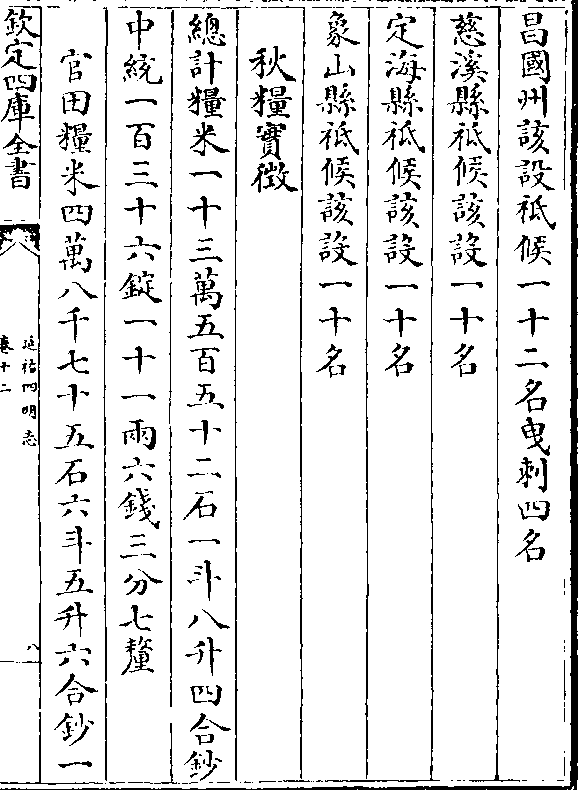 昌國州該設祗候一十二名曵剌四名
慈溪縣祗候該設一十名
定海縣祗候該設一十名
象山縣祗候該設一十名
秋糧實徴
總計糧米一十三萬五百五十二石一斗八升四合鈔
中統一百三十六錠一十一兩六錢三分七釐
官田糧米四萬八千七十五石六斗五升六合鈔一
欽定四庫全書
延祐四明志
卷十二
八